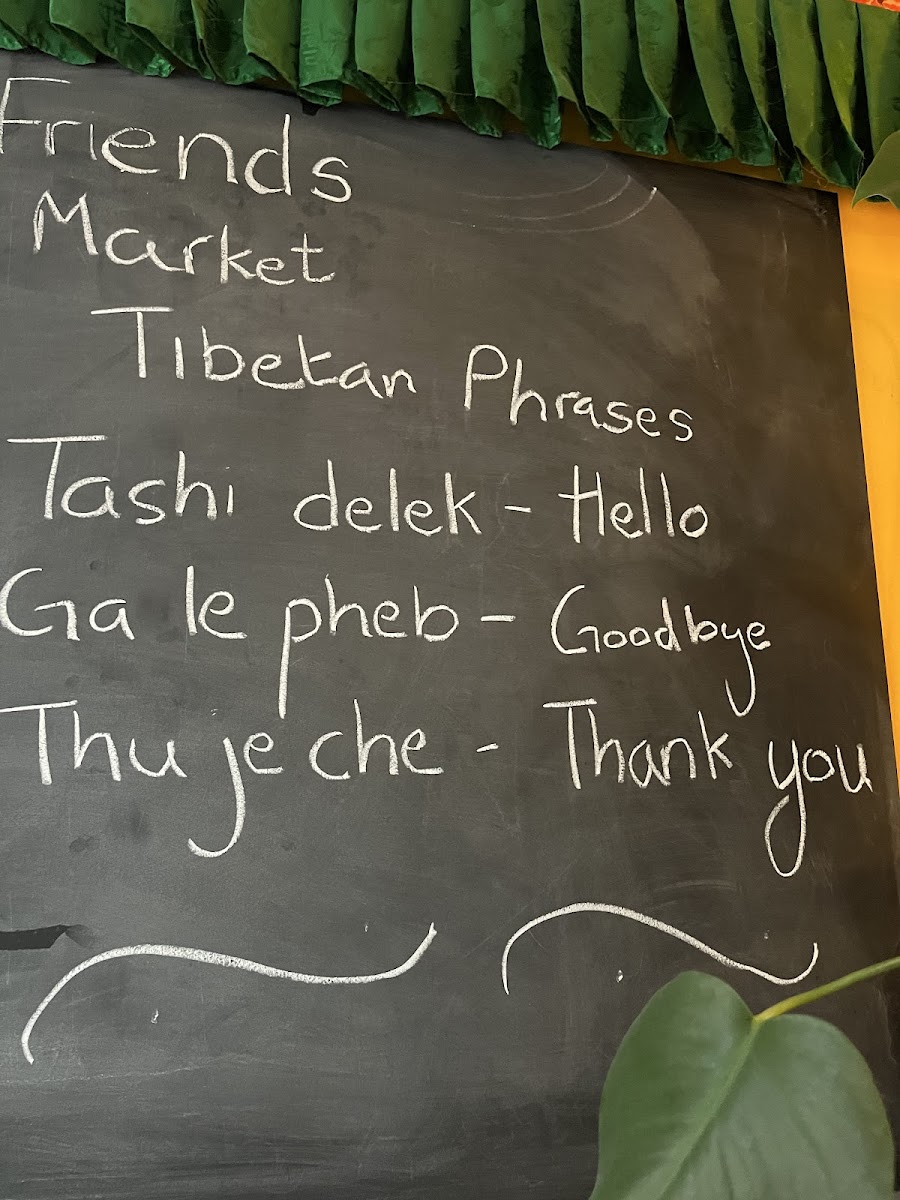 Friends
Market
Tibetan Phrases
Tashi delek - Hello
Ga le pheb - Goodbye
Thu je che - Thank you